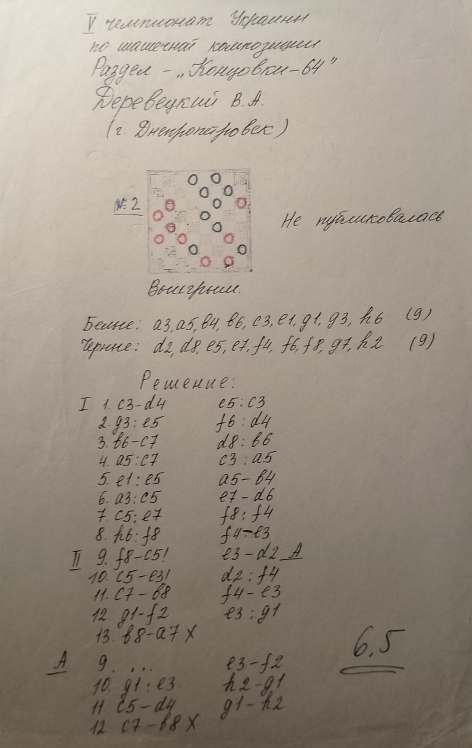 V чемпионат Украины
по шашечной композиции
Раздел - „Концовки-64"
Деревецкий В.А.
(г. Днепропетровск)
№ 2
Не публиковалась
Выигрыш.
Белые: a3, a5, b4, b6, c3, e1, g1, g3, h6 (9)
Черные: d2, d8, e5, e7, f4, f6, f8, g7, h2 (9)
Решение:
I 1. c3-d4 e5:c3
2. g3:e5 f6:d4
3. b6-c7 d8:b6
4. a5:c7 c3:a5
5. e1:e5 a5-b4
6. a3:c5 e7-d6
7. c5:e7 f8:f4
8. h6:f8 f4-e3
II 9. f8-c5! e3-d2 A
10. c5-e3! d2:f4
11. c7-b8 f4-e3
12 g1-f2 e3:g1
13. b8-a7 X
6,5
A 9. ... e3-f2
10. g1:e3 h2-g1
11. c5-d4 g1-h2
12. c7-b8 X